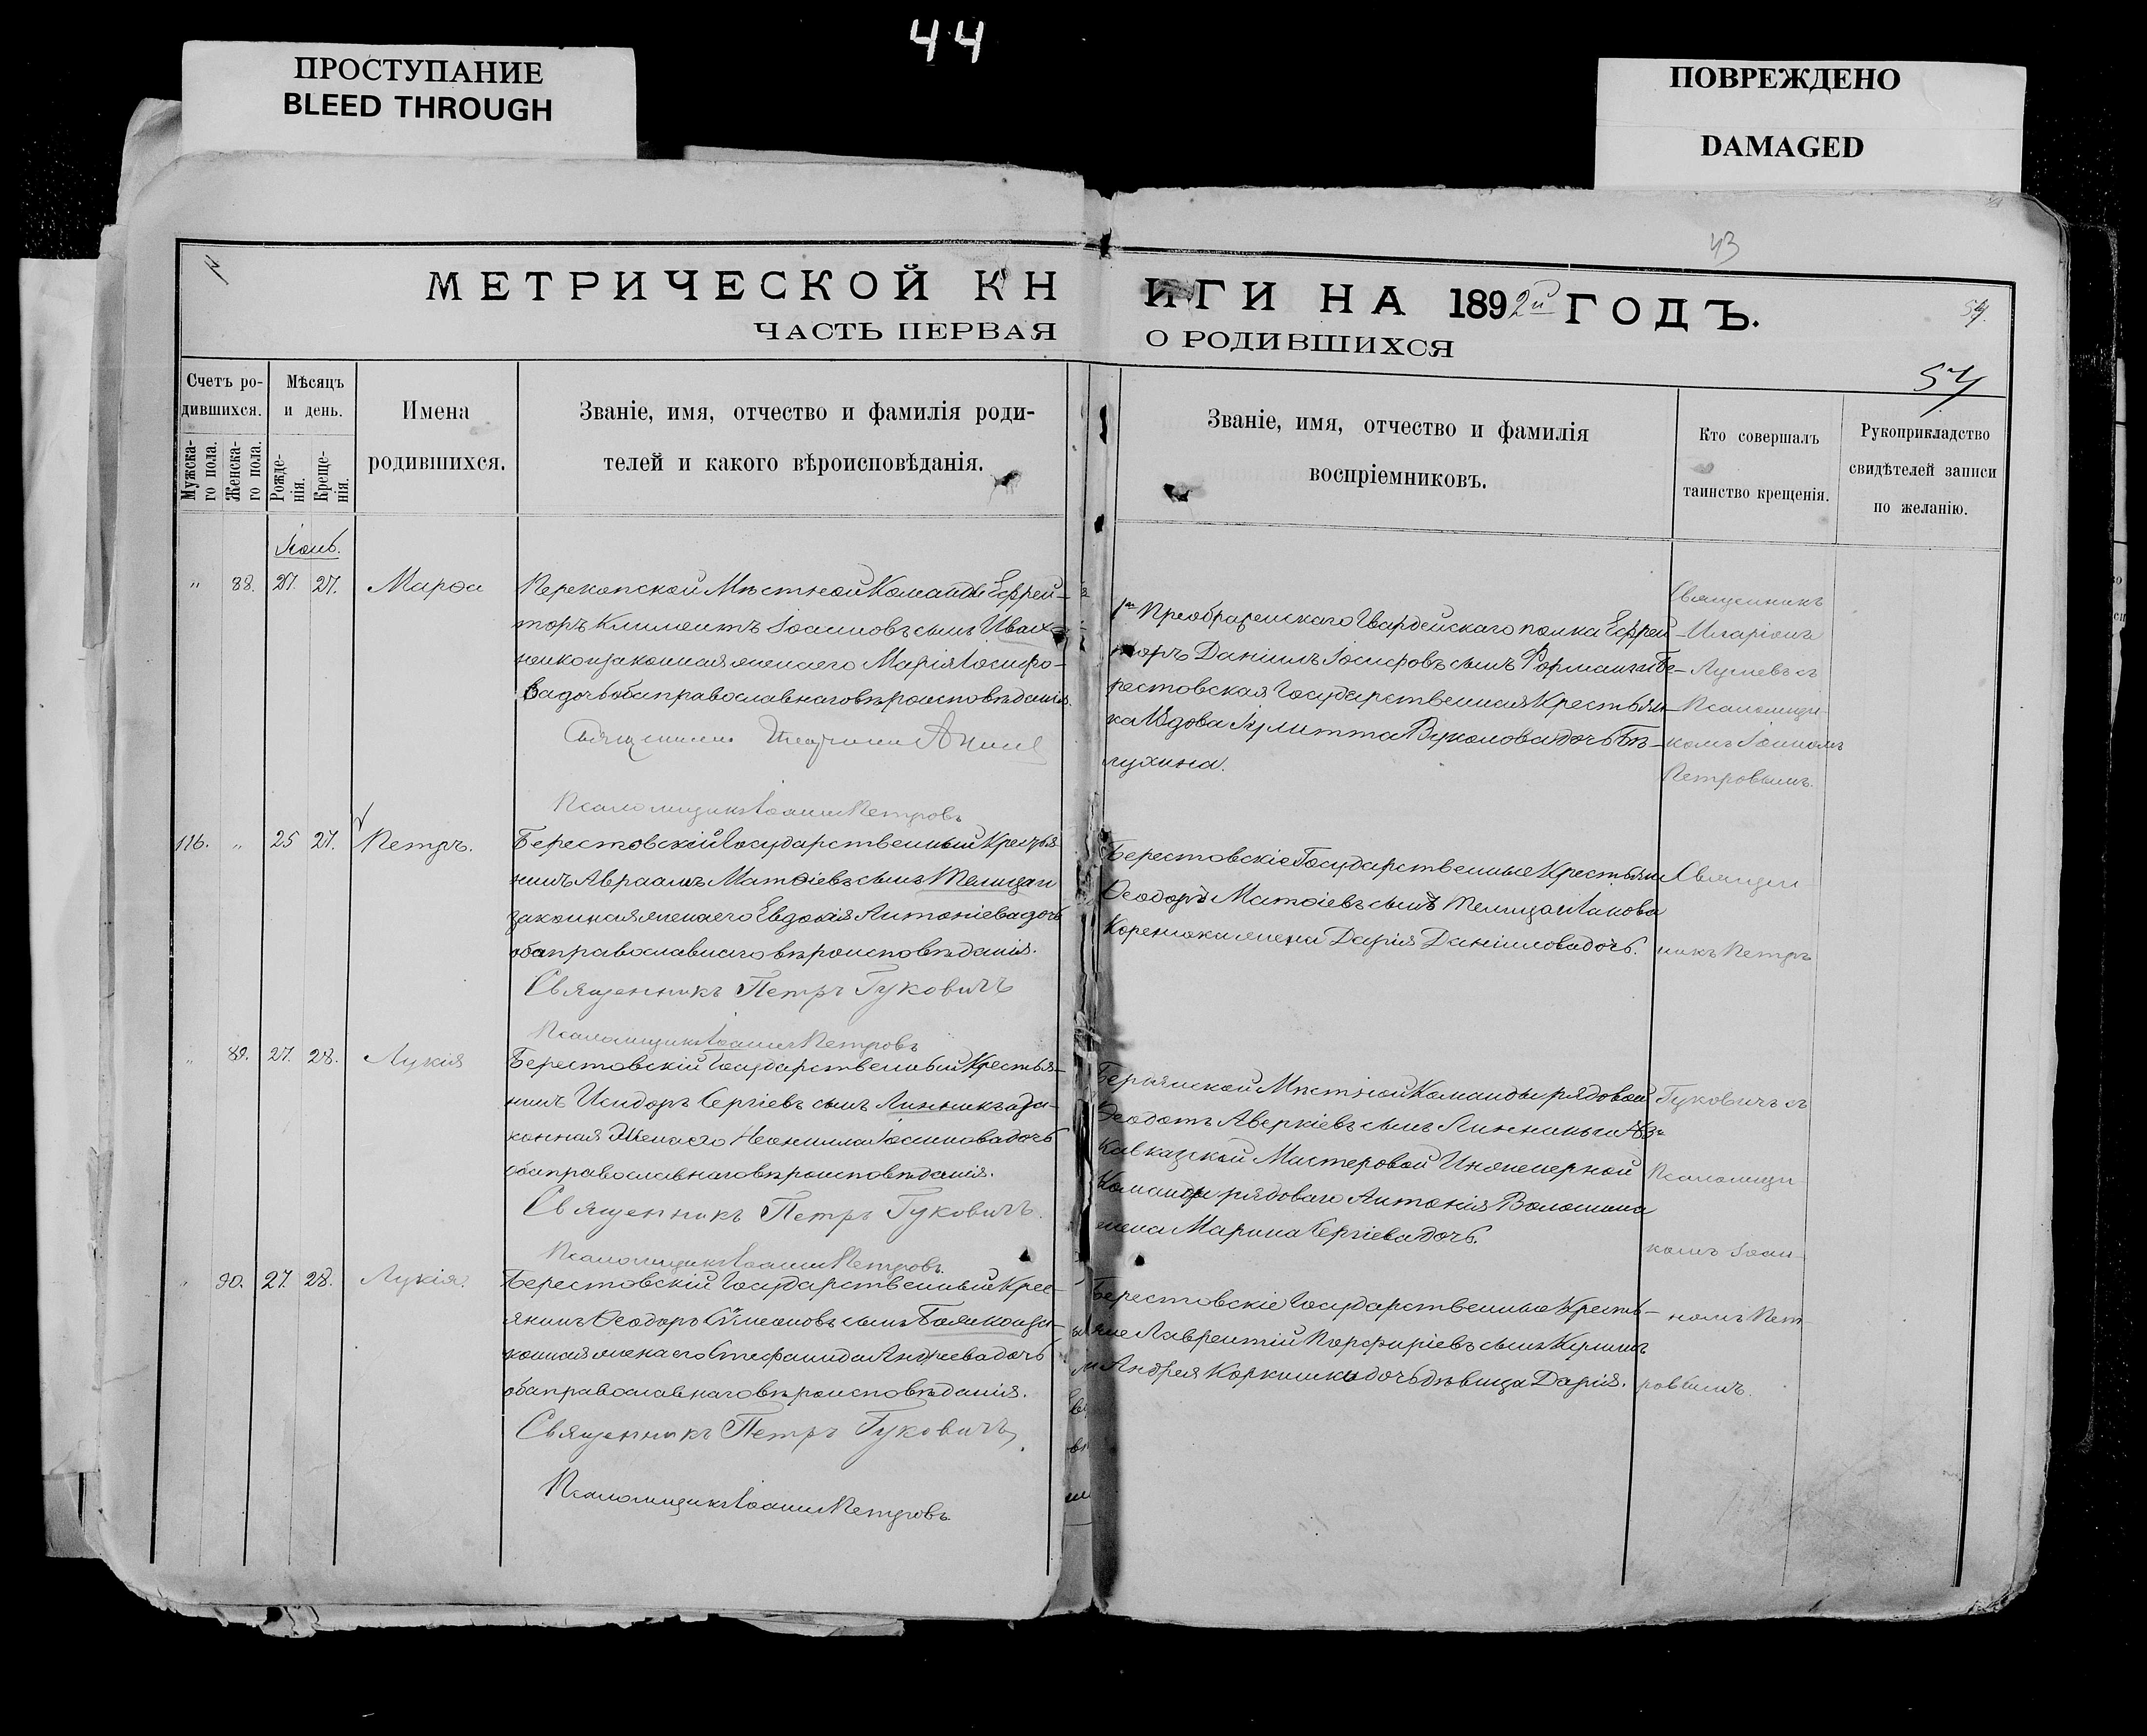 44
ПРОСТУПАНИЕ
BLEED THROUGH
ПОВРЕЖДЕНО
DAMAGED
43
МЕТРИЧЕСКОЙ КН
ИГИ НА 1892й ГОДЪ.
ЧАСТЬ ПЕРВАЯ
О РОДИВШИХСЯ
54.
54
Счетъ ро-
дившихся.
Мужска-
го пола.
Женска-
го пола.
Мѣсяцъ
и день.
Рожде-
нія.
Креще-
нія.
Имена
родившихся.
Званіе, имя, отчество и фамилія роди-
телей и какого вѣроисповѣданія.
Званіе, имя, отчество и фамилія
воспріемниковъ.
Кто совершалъ
таинство крещенія.
Рукоприкладство
свидѣтелей записи
по желанію.
" 88. 27. 27. Марѳа
Перекопской Мѣстной Команды Ефрей-
торъ Климентъ Іоанновъ сынъ
законная жена его Марія Іосифо-
ва дочь оба православнаго вѣроисповѣданія.
Священникъ
Псаломщикъ Іоаннъ Петровъ
Преображенскаго Гвардейскаго полка Ефрей-
торъ Даніилъ Іосифовъ сынъ Бе-
рестовская Государственная Крестьян-
ка Вдова Іулитта Вуколова дочь Бѣ-
лухина.
Священникъ
Иларіонъ
съ
Псаломщи-
комъ Іоанномъ
Петровымъ.
116. " 25 27. Петръ.
Берестовскій Государственный Крестья-
нинъ Авраамъ Матѳіевъ сынъ Телицан
законная жена его Евдокія Антоніева дочь
оба православнаго вѣроисповѣданія.
Священникъ Петръ Гуковичъ
Псаломщикъ Іоаннъ Петровъ
Берестовскіе Государственные Крестьяне
Ѳеодоръ Матѳіевъ сынъ Іакова
жена Дарія Даніилова дочь.
Священ-
никъ Петръ
" 89. 27. 28. Лукія
Берестовскій Государственный Крестья-
нинъ Исидоръ Сергіевъ сынъ Линникъ за-
конная жена его Неонилла Іоаннова дочь
оба православнаго вѣроисповѣданія.
Священникъ Петръ Гуковичъ.
Псаломщикъ Іоаннъ Петровъ.
Мѣстной Команды рядовой
Ѳеодотъ Аверкіевъ сынъ Линникъ и
Кавказской Мастеровой Инженерной
Команды рядоваго Антонія Волошина
жена Марина Сергіева дочь.
Гуковичъ съ
Псаломщи-
комъ Іоан-
" 90. 27. 28. Лукія.
Берестовскій Государственный Крес-
янинъ Ѳеодоръ Симеоновъ сынъ за-
конная жена его Стефанида Андреева дочь
оба православнаго вѣроисповѣданія.
Священникъ Петръ Гуковичъ,
Псаломщикъ Іоаннъ Петровъ
Берестовскіе Государственные Кресть-
яне Лаврентій Порфиріевъ сынъ
и Андрея дочь дѣвица Дарія.
номъ Пет-
ровымъ.